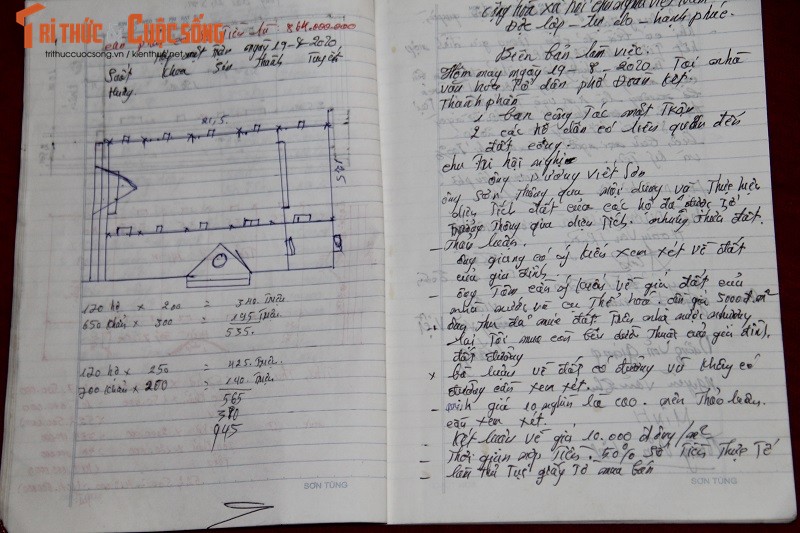 TRI THỨC CUỘC SỐNG
trithuccuocsong.vn / kienthuc.net.vn
Tiền từ 864.000.000
mặt Trận ngày 19-8-2020
Suốt Khoa Sín Thành Tuyến
Hương
21,5
14,5
170 hộ × 200 = 340. Triệu
650 Khẩu × 300 = 195 Triệu
535.
170 hộ × 250 = 425. Triệu.
700 Khẩu × 200 = 140. Triệu
565
380
945
SƠN TÙNG
Cộng hòa xã hội chủ nghĩa việt nam
Độc lập - Tự do - hạnh phúc.
Biên bản làm việc.
Hôm nay ngày 19 - 8 - 2020 Tại nhà
văn hóa Tổ dân phố Đoàn Kết.
Thành phần
1 ban công Tác mặt Trận
2 các hộ dân có liên quan đến
đất công.
chủ trì hội nghị
ông: Dương viết Sơn
ông Sơn Thông qua nội dung và Thực hiện
diện Tích đất của các hộ đã được Tổ
Trưởng Thông qua diện Tích. những Thửa đất.
Thảo luận.
- ông giang có ý kiến xem xét về đất
của gia đình.
- ông Tâm cần ý kiến về giá đất của
nhà nước về cụ Thể hóa. đơn giá 5000đ m²
đất đường
× bổ luận về đất có đường và không có
đường cần xem xét.
- mình giá 10 nghìn là cao. nên Thảo luận.
cần xem xét.
- Kết luận về giá 10.000 đồng/m²
- Thời gian nộp Tiền. 50% số Tiền Thực Tế
- làm Thủ Tục giấy Tờ mua bán
SƠN TÙNG